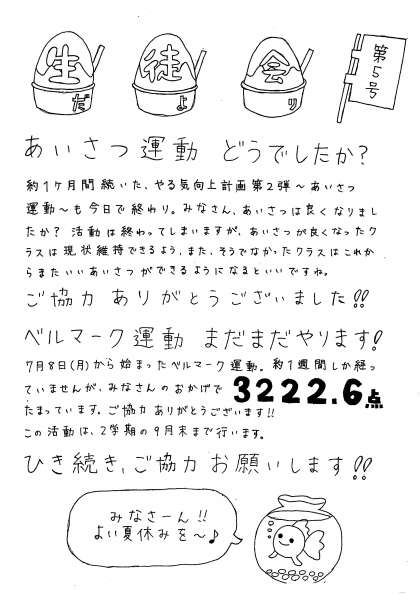 生徒会だより 第5号
あいさつ運動 どうでしたか?
約1ヶ月間続いた、やる気向上計画第2弾～あいさつ
運動～も今日で終わり。みなさん、あいさつは良くなりまし
たか? 活動は終わってしまいますが、あいさつが良くなったク
ラスは現状維持できるよう、また、そうでなかったクラスはこれか
らまたいいあいさつができるようになるといいですね。
ご協力 ありがとうございました!!
ベルマーク運動 まだまだやります!
7月8日(月)から始まったベルマーク運動。約1週間しか経っ
ていませんが、みなさんのおかげで 3222.6点
たまっています。ご協力 ありがとうございます!!
この活動は、2学期の9月末まで行います。
ひき続き、ご協力 お願いします!!
みなさーん!!
よい夏休みを～♪